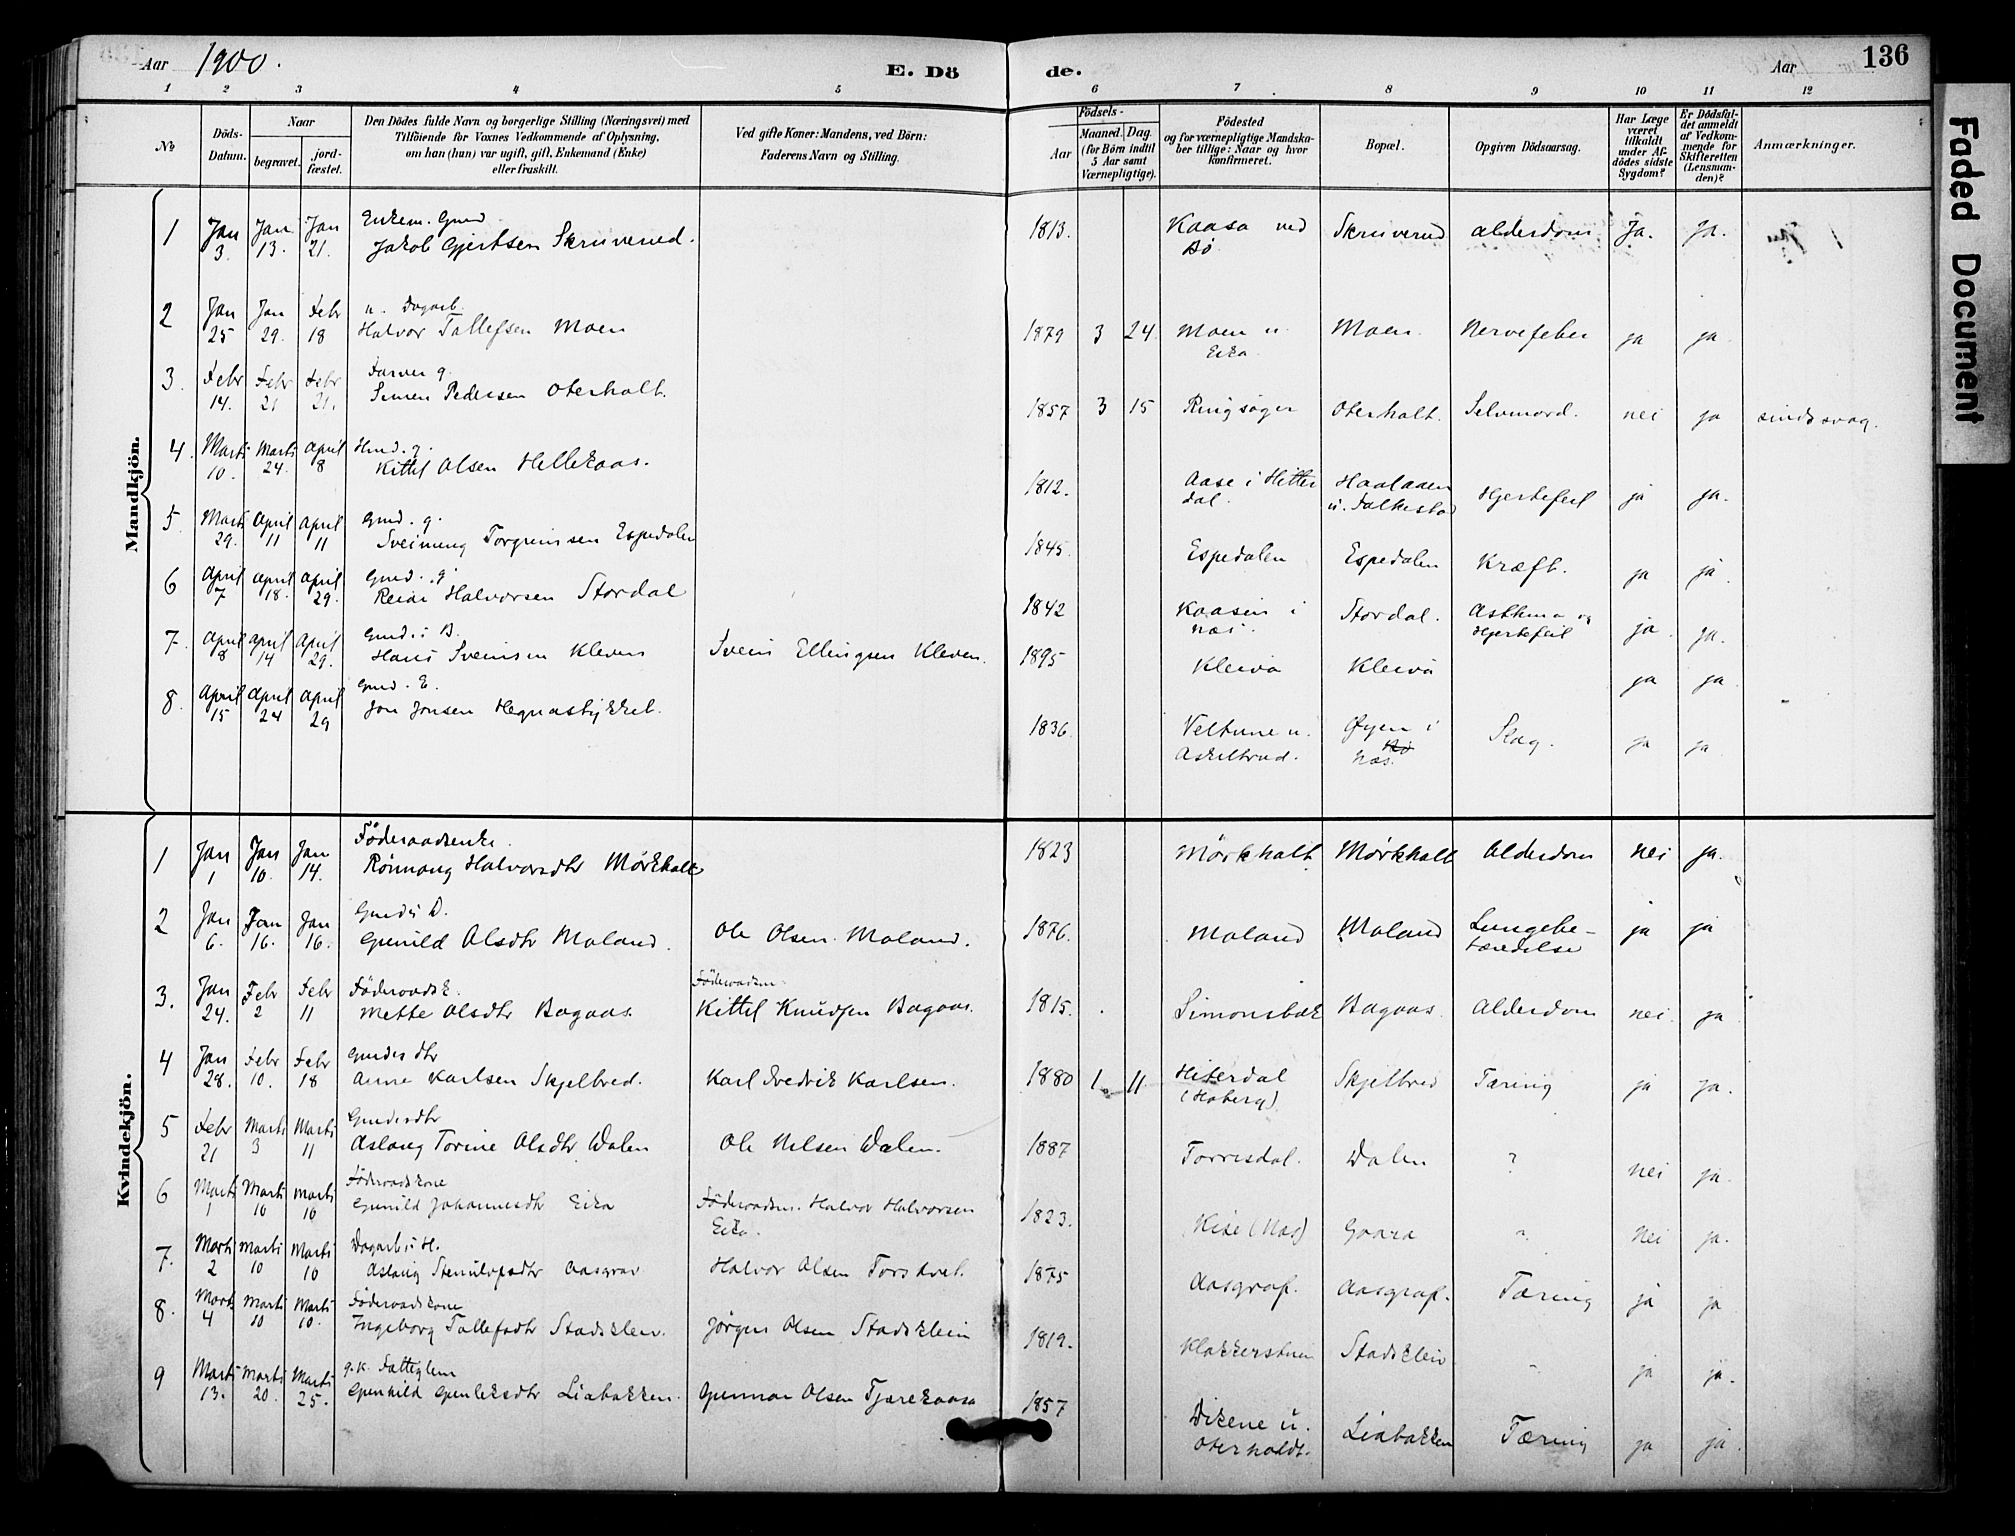 Aar 1900.
E. Dö
de.
Aar
136
1 2 3 4 5 6 7 8 9 10 11 12
No
Döds-
Datum.
Naar
begravet.
jord-
fæstet.
Den Dödes fulde Navn og borgerlige Stilling (Næringsvei) med
Tilföiende for Voxnes Vedkommende af Oplysning,
om han (hun) var ugift, gift, Enkemand (Enke)
eller fraskilt.
Ved gifte Koner: Mandens, ved Börn:
Faderens Navn og Stilling.
Födsels-
Aar
Maaned. Dag.
(for Börn indtil
5 Aar samt
Værnepligtige).
Födested
og for værnepligtige Mandska-
ber tillige: Naar og hvor
konfirmeret.
Bopæl.
Opgiven Dödsaarsag.
Har Læge
været
tilkaldt
under Af-
dödes sidste
Sygdom?
Er Dödsfal-
det anmeldt
af Vedkom-
mende for
Skifteretten
(Lensman-
den)?
Anmærkninger.
Faded Document
Mandkjön.
1 Jan 3. Jan 13. Jan 21. Enkem. Gmd Jakob Gjertsen Skruverud. 1813. Kaasa ved Bø Skruverud alderdom Ja. Ja.
2 Jan 25 Jan 29. Febr 18 u. Dagarb. Halvor Tollefsen Moen 1879 3 24 Moen u. Eika Moen. Nervefeber ja ja
3. Febr 14. Febr 21 Febr 21. Farver g. Simen Pedersen Oterholt. 1857 3 15 Ringsager Oterholt. Selvmord. nei ja sindssvag.
4. Marts 10. Marts 24. April 8 Hmd. g. Kittil Olsen Hellekaas. 1812. Aase i Hitterdal. Haalaaen u. Folkestad Hjertefeil ja ja.
5. Marts 29. April 11 April 11 Gmd. g. Sveinung Torgrimsen Espedalen 1845. Espedalen Espedalen Kræft. ja ja.
6 April 7 April 18. April 29. Gmd. g. Reiar Halvorsen Stordal 1842 Kaasin i Næs. Stordal. Asthma og Hjertefeil ja ja.
7. April 8 April 14 April 29. Gmds B. Hans Sveinsen Kleven Svein Ellingsen Kleven. 1895 Kleiva Kleiva ja ja
8. April 15 April 24 April 29 Gmd. E. Jon Jonsen Hegnastykket. 1836. Veltune u. Askilbrud. Øyen i Bø Næs. Slag. ja ja
Kvindekjön.
1 Jan 1 Jan 10. Jan 14. Föderaadsenke. Rönnaug Halvorsdtr Mörkholt 1823 Mörkholt Mörkholt Alderdom nei ja.
2 Jan 6. Jan 16. Jan 16. Gmds D. Gunild Olsdtr Moland. Ole Olsen Moland. 1876. Moland Moland Lungebetændelse ja ja
3. Jan 24. Febr 2 Febr 11 Föderaadsk. Mette Olsdtr Bagaas. Föderaadsm. Kittil Knudsen Bagaas. 1815. Simonsbæk Bagaas Alderdom nei ja
4 Jan 28. Febr 10. Febr 18 Gmdes dtr Anne Karlsen Skjelbred. Karl Fredrik Karlsen. 1880 1 11 Hiterdal (Hoberg) Skjelbred Tæring ja ja.
5 Febr 21 Marts 3 Marts 11 Gmdesdtr Aslaug Torine Olsdtr Dalen Ole Nilsen Dalen. 1887 Torrisdal. Dalen ? nei ja.
6 Marts 1 Marts 10 Marts 10 Föderaadskone Gunild Johannesdtr Eika Föderaadsm. Halvor Halvorsen Eika. 1823. Kise (Næs) Gaara nei ja.
7. Marts 2 Marts 10 Marts 10 Dagarb.s H. Aslaug Aasgrav Halvor Olsen Torstvet. 1875 Aasgraf. Aasgraf. Tæring ja ja
8. Marts 4 Marts 10 Marts 10. Föderaadskone Ingeborg Tollefsdtr Stadskleiv. Jörgen Olsen Stadskleiv 1819. Klakkerstuen Stadskleiv ja ja.
9 Marts 13. Marts 20. Marts 25. g.k. Fattiglem Gunhild Gunleksdtr Liabakken. Gunnar Olsen Tjærekaasa 1857 Dikene u. Oterholdt. Liabakken Tæring ja ja.